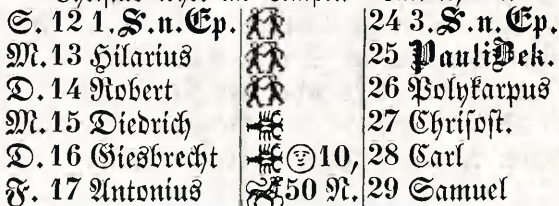 S. 12 1.S.n.Ep. 24 3.S.n.Ep.
M. 13 Hilarius 25 PauliBek.
D. 14 Robert 26 Polykarpus
M. 15 Diedrich 27 Chrisost.
D. 16 Giesbrecht 10, 28 Carl
F. 17 Antonius 50 N. 29 Samuel